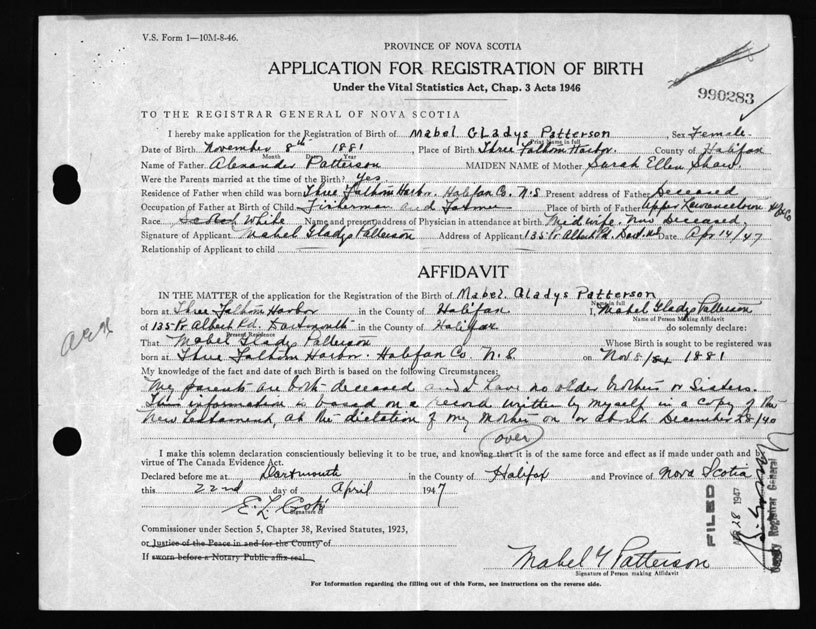 V.S. Form 1—10M-8-46.
PROVINCE OF NOVA SCOTIA
APPLICATION FOR REGISTRATION OF BIRTH
Under the Vital Statistics Act, Chap. 3 Acts 1946
990283
TO THE REGISTRAR GENERAL OF NOVA SCOTIA
I hereby make application for the Registration of Birth of Mabel Gladys Patterson, Sex Female
Print Name in full
Date of Birth November 8th 1881, Place of Birth Three Fathom Harbor. County of Halifax
Month Day Year
Name of Father Alexander Patterson MAIDEN NAME of Mother Sarah Ellen Shaw
Were the Parents married at the time of the Birth? Yes
Residence of Father when child was born Three Fathom Harbor. Halifax Co. N.S Present address of Father Deceased
Occupation of Father at Birth of Child Fisherman and Farmer Place of birth of Father Upper Lawrencetown Hfx Co
Race Scotch White Name and present address of Physician in attendance at birth Midwife, now Deceased
Signature of Applicant Mabel Gladys Patterson Address of Applicant 135 Pr Albert Rd. Dart. N.S Date Apr 14/47
Relationship of Applicant to child
AFFIDAVIT
IN THE MATTER of the application for the Registration of the Birth of Mabel. Gladys Patterson
Name in full
born at Three Fathom Harbor in the County of Halifax I, Mabel Gladys Patterson
Name of Person Making Affidavit
of 135 Pr Albert Rd. Dartmouth in the County of Halifax do solemnly declare:
Present Residence
That Mabel Gladys Patterson Whose Birth is sought to be registered was
born at Three Fathom Harbor. Halifax Co. N.S. on Nov 8/ 1881
My knowledge of the fact and date of such Birth is based on the following Circumstances:
My parents are both deceased and I have no older brothers or Sisters.
This information is based on a record written by myself in a copy of the
New Testament, at the dictation of my Mother on or about December 28/40
over
I make this solemn declaration conscientiously believing it to be true, and knowing that it is of the same force and effect as if made under oath and by
virtue of The Canada Evidence Act.
Declared before me at Dartmouth in the County of Halifax and Province of Nova Scotia
this 22nd day of April 1947
E. L.
Signature of
Commissioner under Section 5, Chapter 38, Revised Statutes, 1923,
or Justice of the Peace in and for the County of
If sworn before a Notary Public affix seal
Mabel G Patterson
Signature of Person making Affidavit
For Information regarding the filling out of this Form, see instructions on the reverse side.
FILED
28 1947
Deputy Registrar General